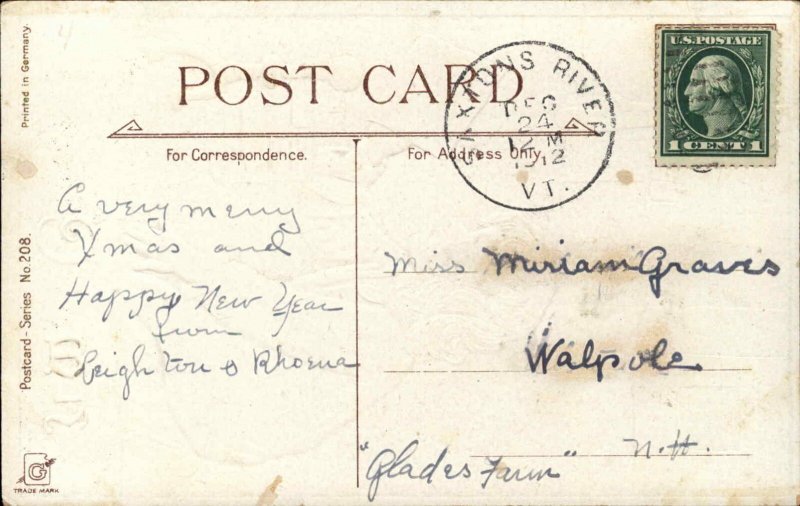 Printed in Germany.
Postcard-Series No. 208.
G
TRADE MARK
POST CARD
For Correspondence.
For Address Only.
SAXTONS RIVER
DEC
24
12 M
1912
VT.
U.S. POSTAGE
1 CENT 1
A very merry
Xmas and
Happy New Year
from
Leighton & Rhoena
Miss Miriam Graves
Walpole
N.H.
"Glades Farm"